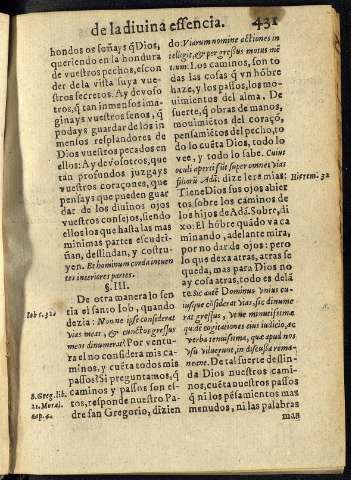 de la diuina essencia. 431
hondos os soñays q̃ Dios,
queriendo en la hondura
de vuestros pechos, escon
der de la vista suya vue-
stros secretos. Ay de voso
tros, q̃ tan inmensos ima-
ginays vuestros senos, q̃
podays guardar de los in
mensos resplandores de
Dios vuestros pecados en
ellos: Ay de vosotros, que
tan profundos juzgays
vuestros coraçones, que
pensays que pueden guar
dar de los diuinos ojos
vuestros consejos, siendo
ellos los que hasta las mas
minimas partes escudri-
ñan, deslindan, y costru-
yen. Et hominum corda intuen
tes interiores partes.
§. III.
De otra manera lo sen
tia el santo Iob, quando
dezia: Nonne ipse considerat
vias meas, & cunctos gressus
meos dinumerat? Por ventu
ra el no considera mis ca-
minos, y cuẽta todos mis
passos? Si preguntamos, q̃
caminos y passos son es-
tos, responde nuestro Pa
dre san Gregorio, dizien
Iob c. 31.
S. Greg. lib.
21. Moral.
cap. 4.
do: Viarum nomine actiones in
telligit, & per gressus motus mẽ
tium. Los caminos, son to
das las cosas q̃ vn hõbre
haze, y los passos, los mo-
uimientos del alma. De
suerte, q̃ obras de manos,
mouimiẽtos del coraçõ,
pensamiẽtos del pecho, to
do lo cuẽta Dios, todo lo
vee, y todo lo sabe. Cuius
oculi aperti sũt super omnes vias
filiorũ Adã: dize Ieremias:
Tiene Dios sus ojos abier
tos, sobre los caminos de
los hijos de Adã. Sobre, di
xo: El hõbre quãdo va ca
minando, adelante mira,
por no dar de ojos: pero
lo que dexa atras, atras se
queda, mas para Dios no
ay cosa atras, todo es delã
te. Sic autẽ Dominus vnius cu-
iusque considerat vias, sic dinume
rat gressus, vt ne minutissimæ
quidẽ cogitationes eius iudicio, ac
verba tenuissima, quæ apud nos
vsu viluerunt, in discussa rema-
neant. De tal suerte deslin
da Dios nuestros cami-
nos, cuẽta nuestros passos
q̃ ni los pẽsamiẽtos mas
menudos, ni las palabras
mas
Hierem. 32